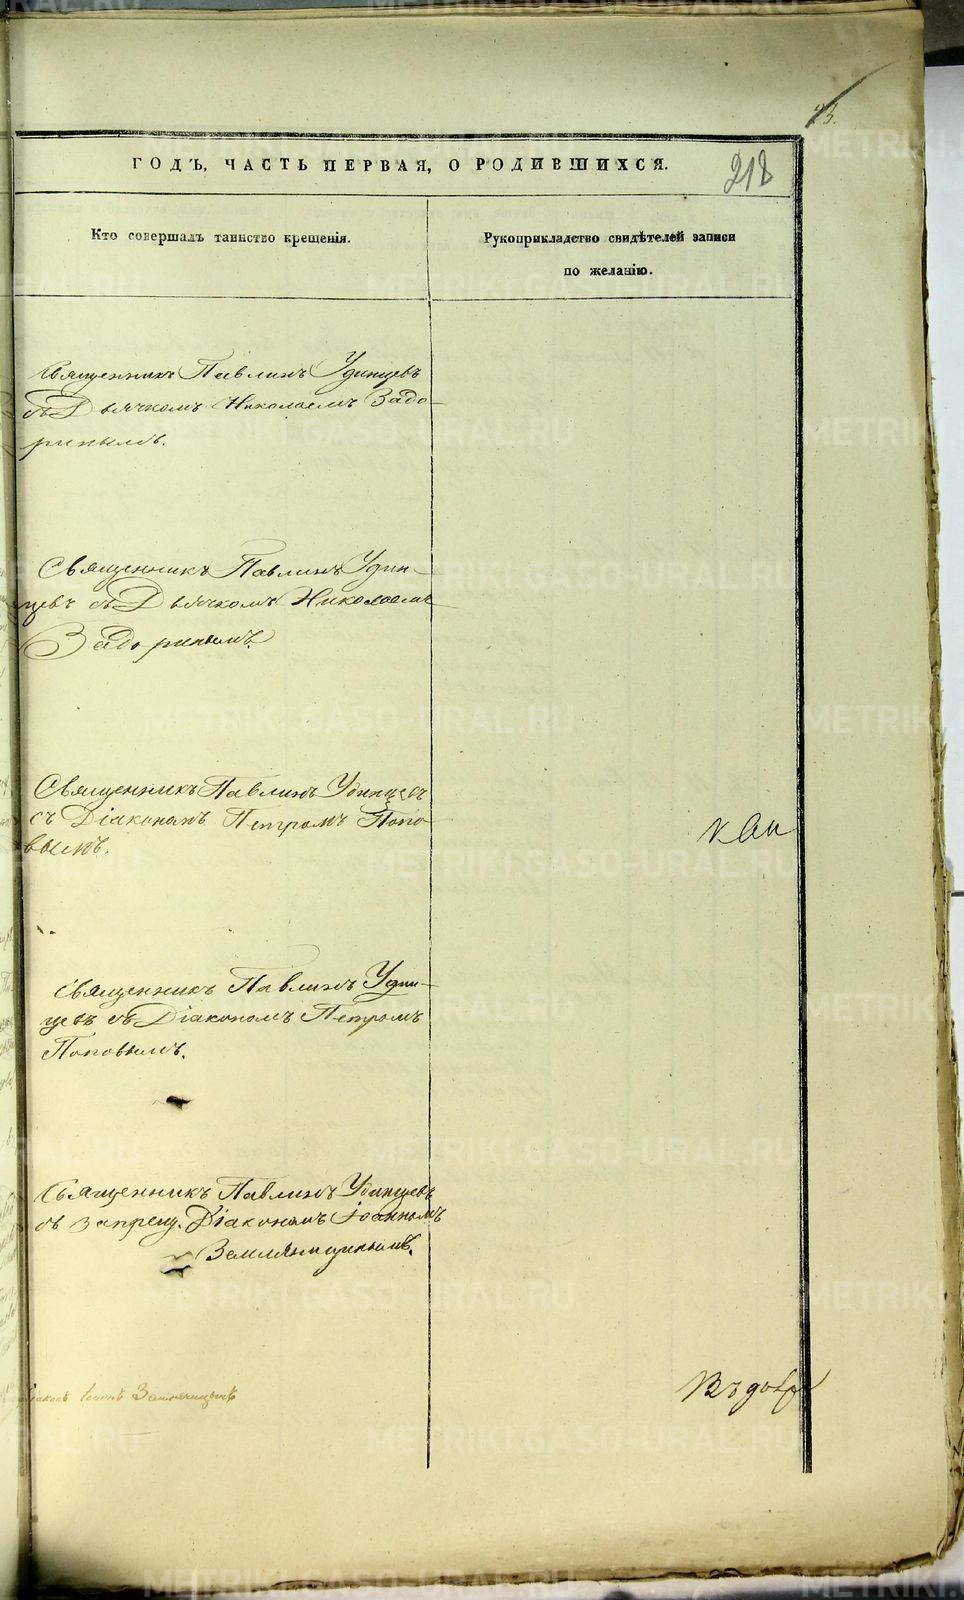 23.
ГОДЪ, ЧАСТЬ ПЕРВАЯ, О РОДИВШИХСЯ.
218
Кто совершалъ таинство крещенія.
Рукоприкладство свидѣтелей записи
по желанію.
Священникъ Павлинъ Удинцевъ
съ Дьячкомъ Николаемъ Задо-
ринымъ.
Священникъ Павлинъ Удин-
цевъ съ Дьячкомъ Николаемъ
Задоринымъ.
Священникъ Павлинъ Удинцевъ
съ Діакономъ Петромъ Попо-
вымъ.
Священникъ Павлинъ Удин-
цевъ съ Діакономъ Петромъ
Поповымъ.
Священникъ Павлинъ Удинцевъ
съ запрещ. Діакономъ Іоанномъ
Земляницынымъ.
METRIKI.GASO-URAL.RU